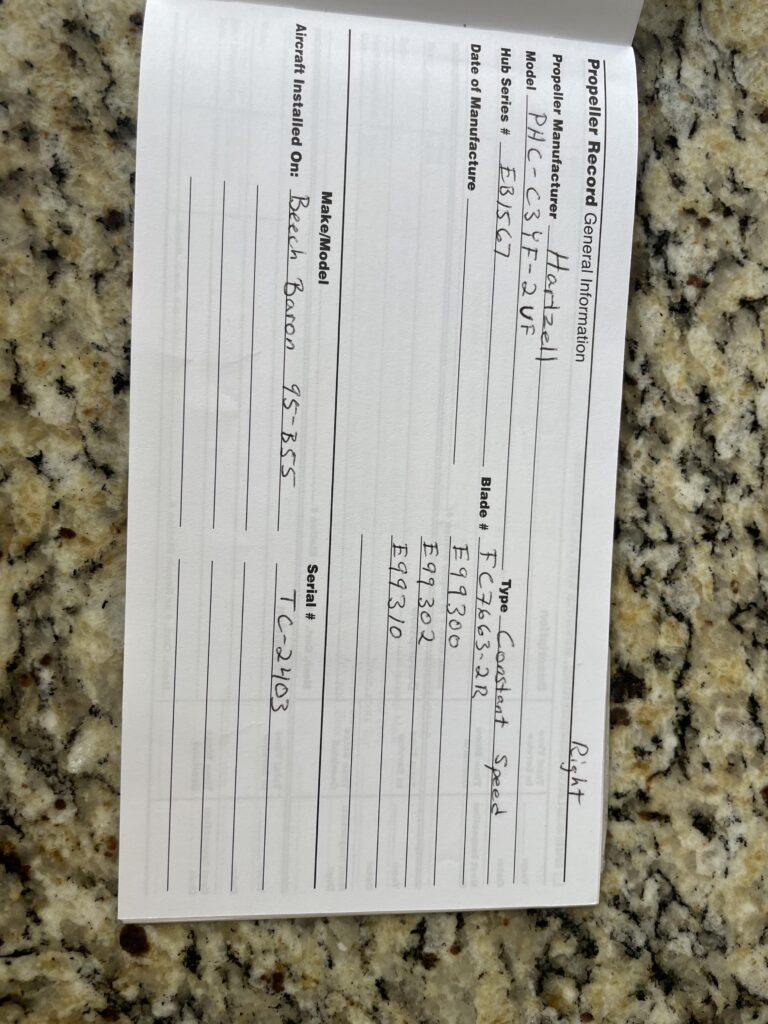 Propeller Record General Information Right
Propeller Manufacturer Hartzell
Model PHC-C3YF-2UF Type Constant Speed
Hub Series # EB1567 Blade # FC7663-2R
Date of Manufacture E99300
E99302
E99310
Make/Model Serial #
Aircraft Installed On: Beech Baron 95-B55 TC-2403